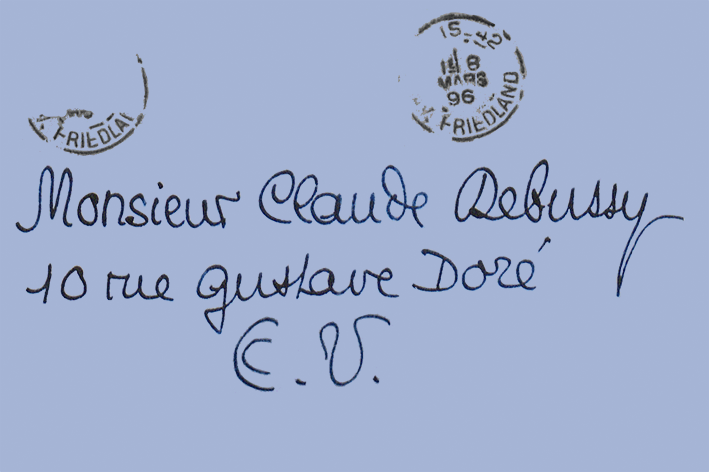 15-42
18
MARS
96
FRIEDLAND
FRIEDLA
Monsieur Claude Debussy
10 rue Gustave Doré
E.V.